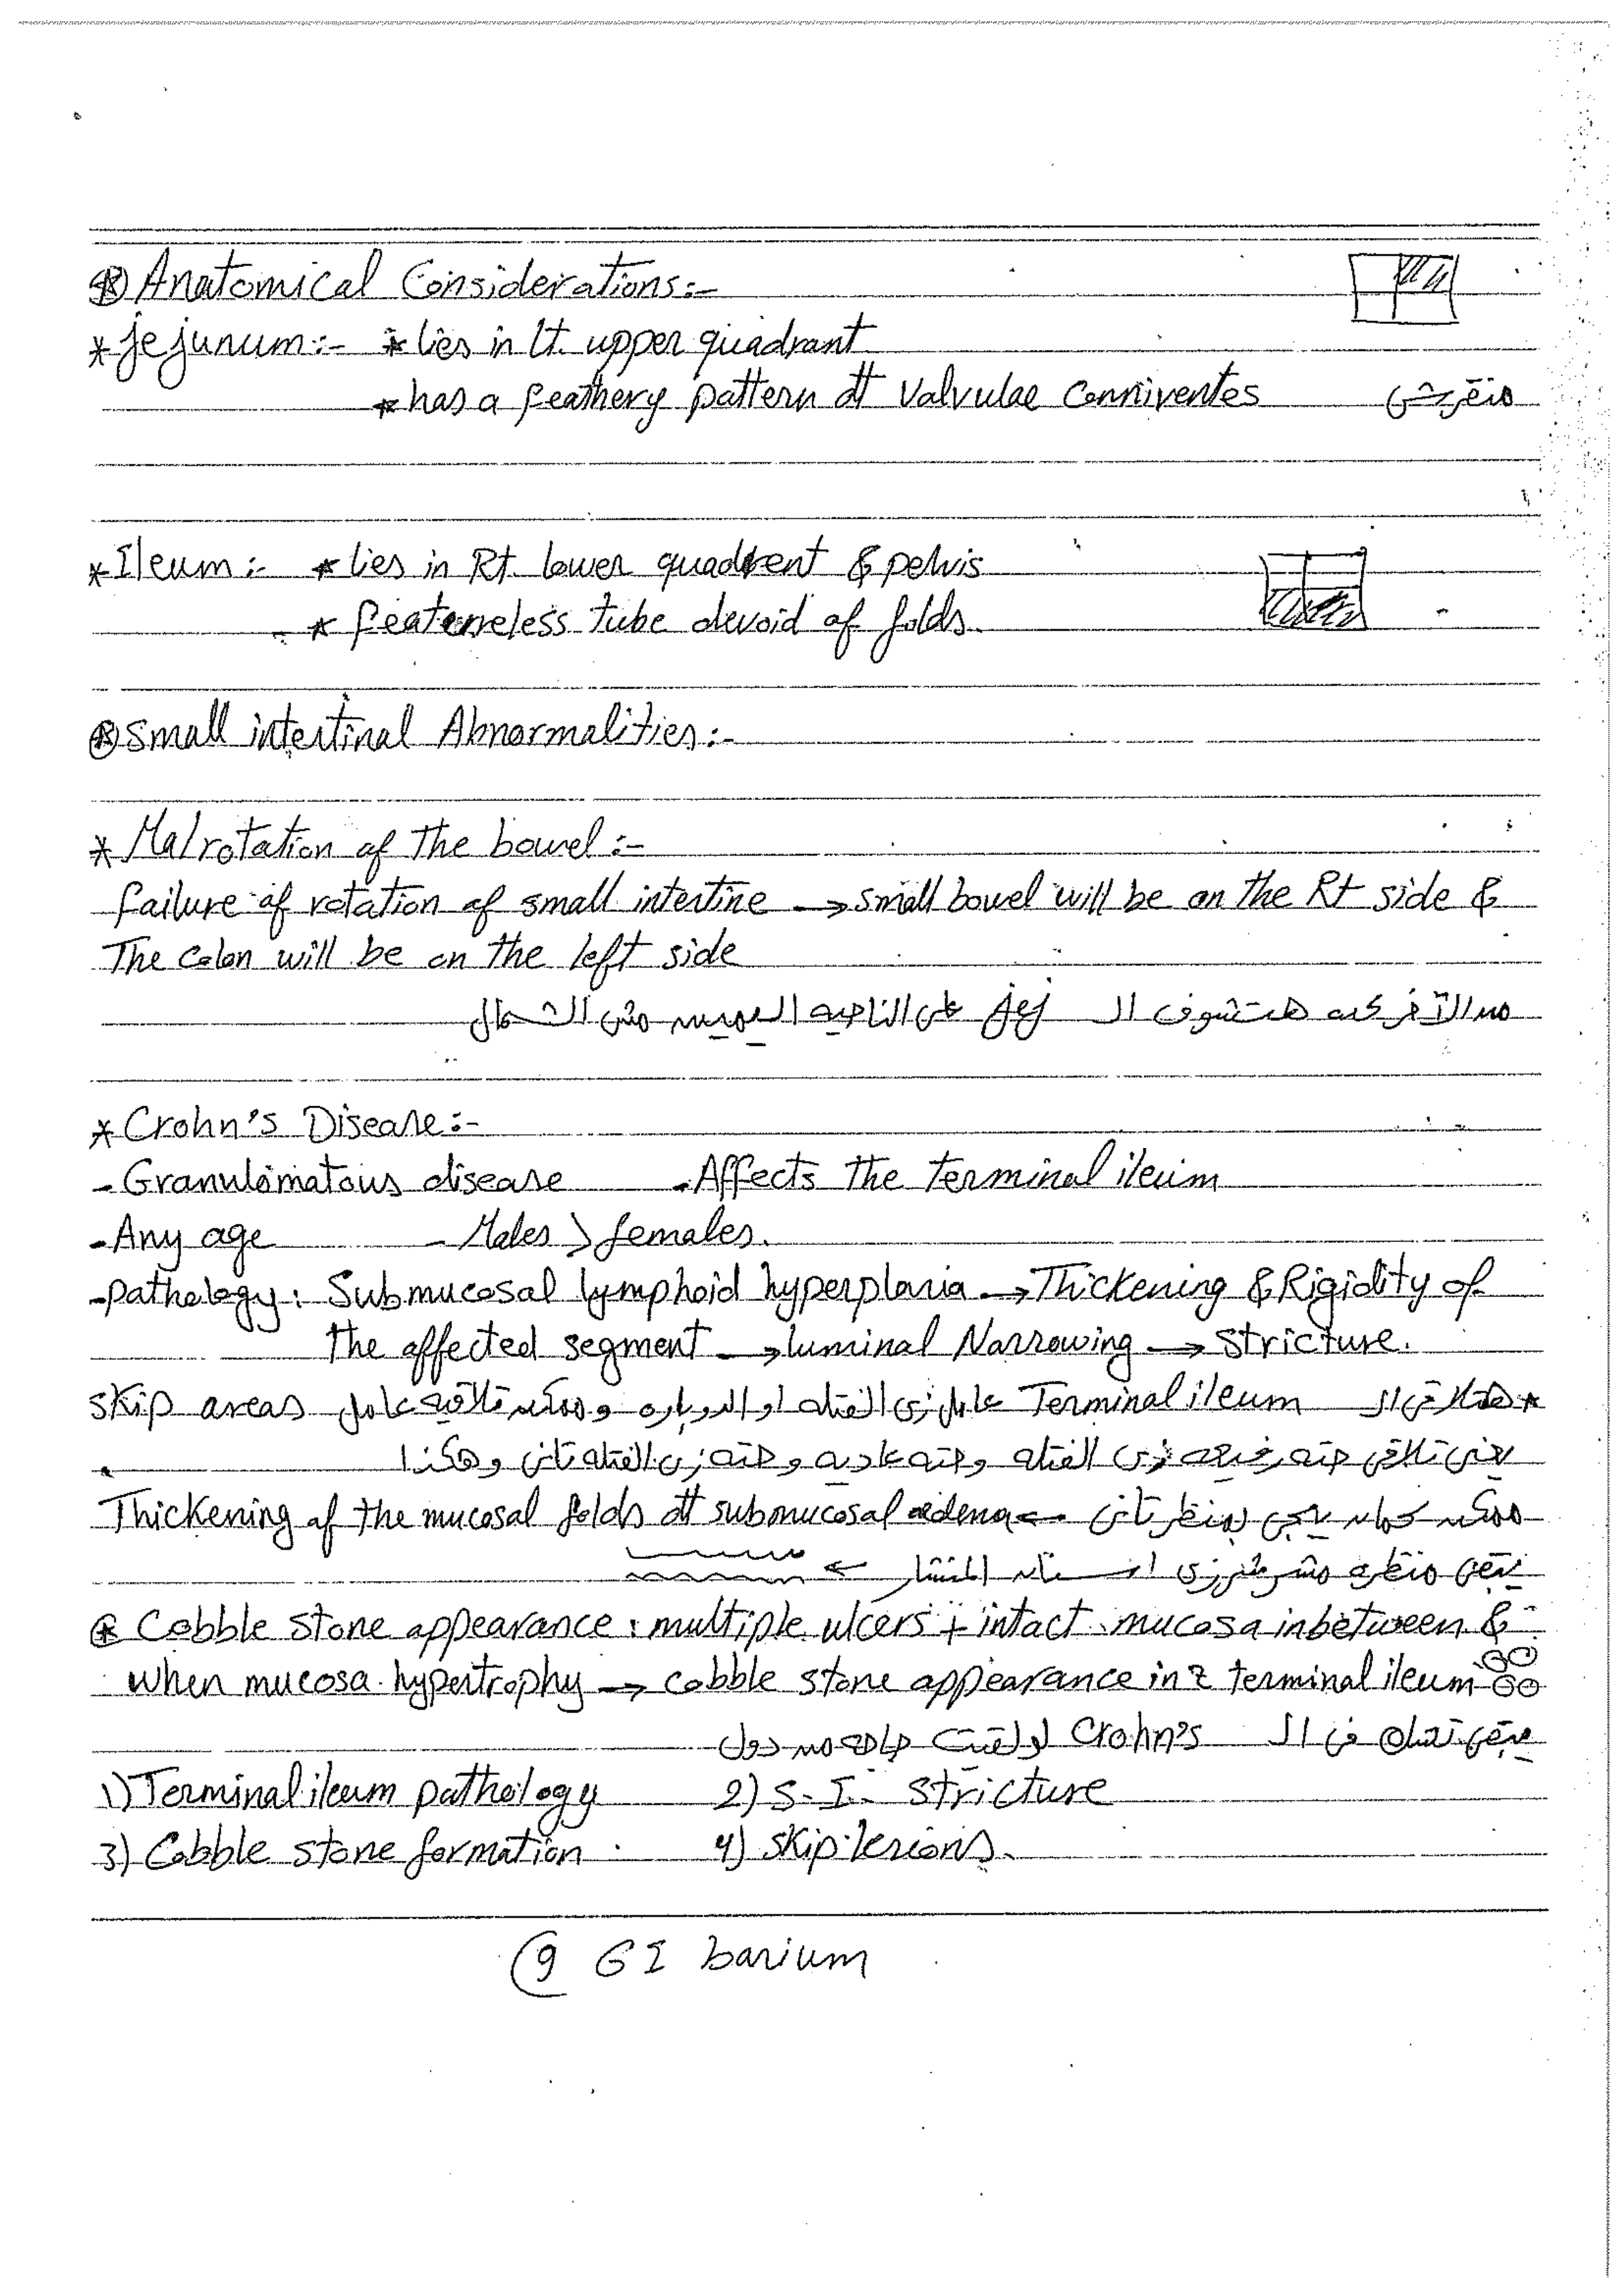 ⊛ Anatomical Considerations:-
* Jejunum:- * lies in Lt. upper quadrant
* has a feathery pattern dt Valvulae Conniventes
* Ileum:- * lies in Rt. lower quadrent & pelvis
* featureless tube devoid of folds.
⊛ Small intestinal Abnormalities:-
* Malrotation of The bowel:-
failure of rotation of small intestine → small bowel will be on the Rt side &
The Colon will be on the left side
من الآخر كده هتشوف ال jej على الناحيه اليمين مش الشمال
* Crohn's Disease:-
- Granulomatous disease - Affects The terminal ileum
- Any age - Males > females.
- pathology: Submucosal lymphoid hyperplasia → Thickening & Rigidity of
the affected segment → luminal Narrowing → Stricture.
* هتلاقى ال Terminal ileum عامل زى الفتله او الدوباره وممكن تلاقيه عامل skip areas
يعنى تلاقى حته رفيعه زى الفتله وحته عاديه وحته زى الفتله تانى وهكذا
ممكن كمان ييجى بمنظر تانى ← Thickening of the mucosal folds dt submucosal oedema
يبقى منظره مشرشر زى اسنان المنشار ←
⊛ Cobble stone appearance: multiple ulcers + intact mucosa inbetween &
when mucosa hypertrophy → cobble stone appearance in z terminal ileum
يبقى فى ال Crohn's لو لقيت حاجه من دول
1) Terminal ileum pathology 2) S.I. stricture
3) Cobble stone formation 4) skip lesions.
9 GI barium